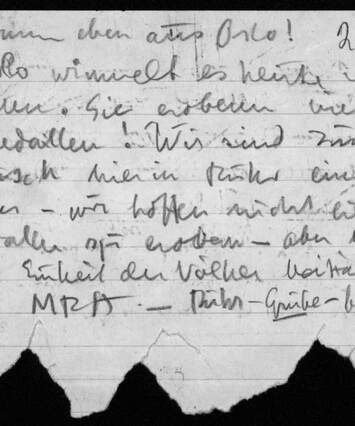 eben aus Oslo! 2
lo wimmelt es heute i
nen. Sie erobern vie
edaillen! Wir sind
isch hier in Ruhr ein
– wir hoffen nicht ei
aillen zu erobern – aber
Einheit der Völker beitra
MRA – Ruhr-Grube-